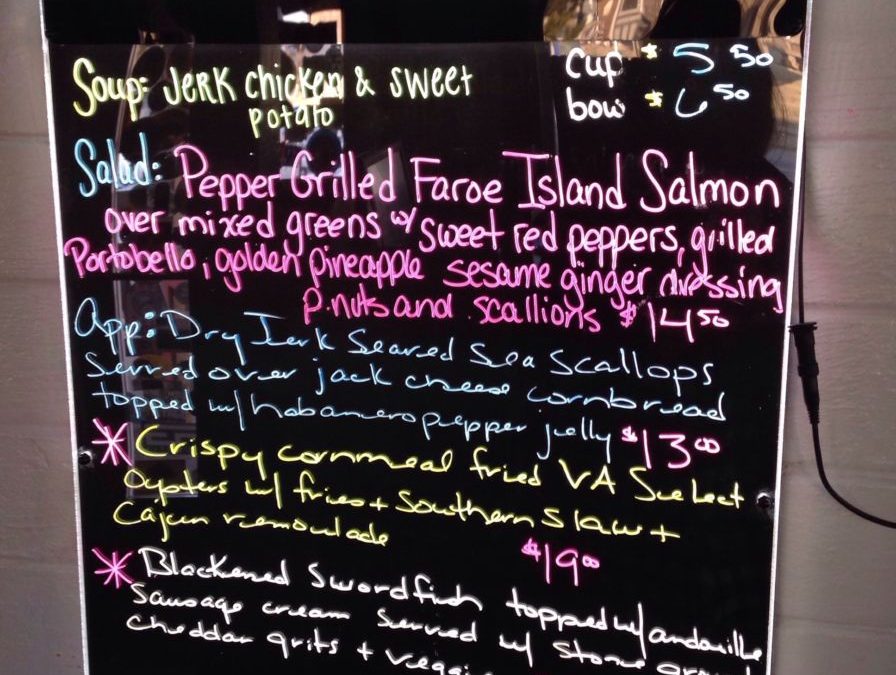 Soup: Jerk chicken & sweet
potato
cup $5 50
bowl $6 50
Salad: Pepper Grilled Faroe Island Salmon
over mixed greens w/ sweet red peppers, grilled
Portobello, golden pineapple sesame ginger dressing
P.nuts and scallions $14 50
App: Dry Jerk Seared Sea Scallops
Served over jack cheese cornbread
topped w/ habanero pepper jelly $13 00
* Crispy cornmeal fried VA Select
Oysters w/ fries + Southern Slaw +
Cajun remoulade
$19 00
* Blackened Swordfish topped w/ andouille
Sausage cream served w/ Stone
cheddar grits +